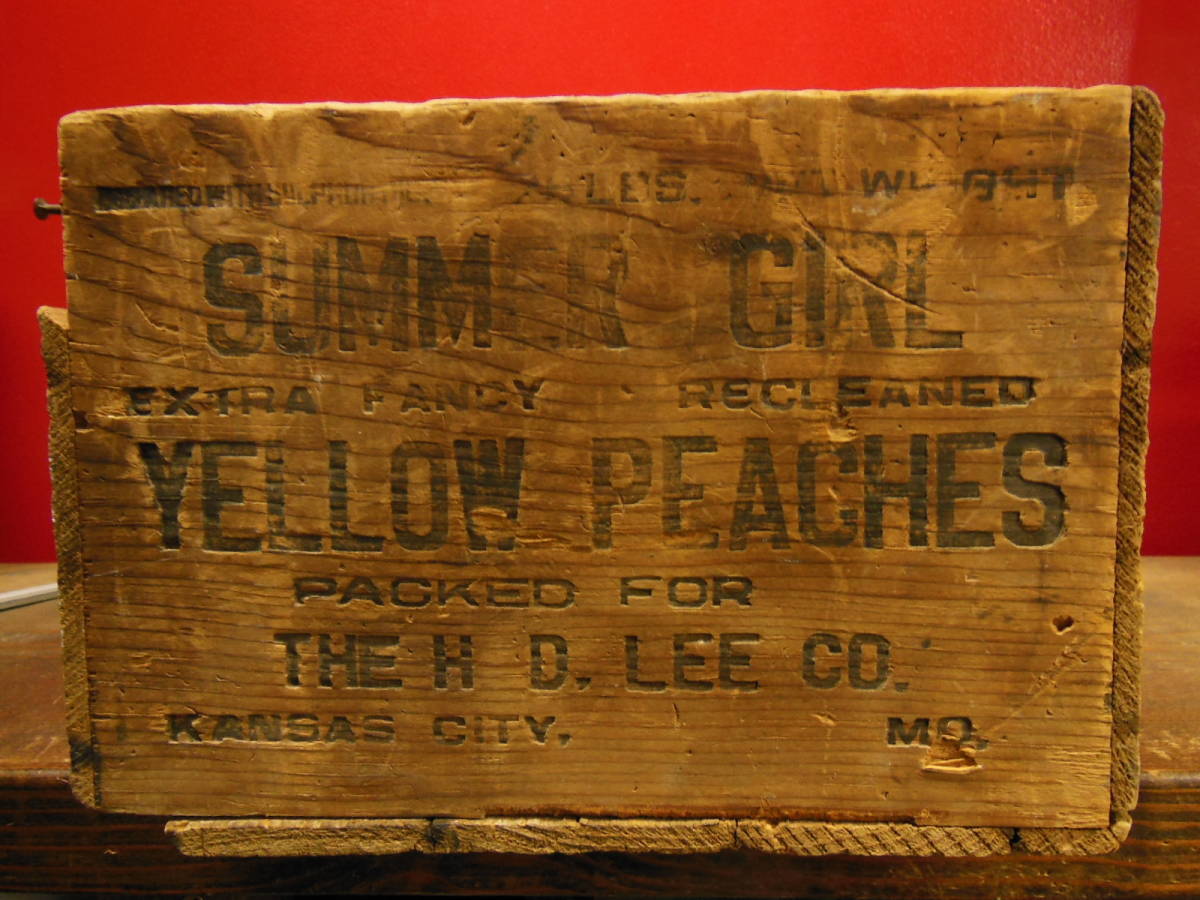 WITH LBS. WEIGHT
SUMMER GIRL
EXTRA FANCY RECLEANED
YELLOW PEACHES
PACKED FOR
THE H D. LEE CO.
KANSAS CITY, MO.